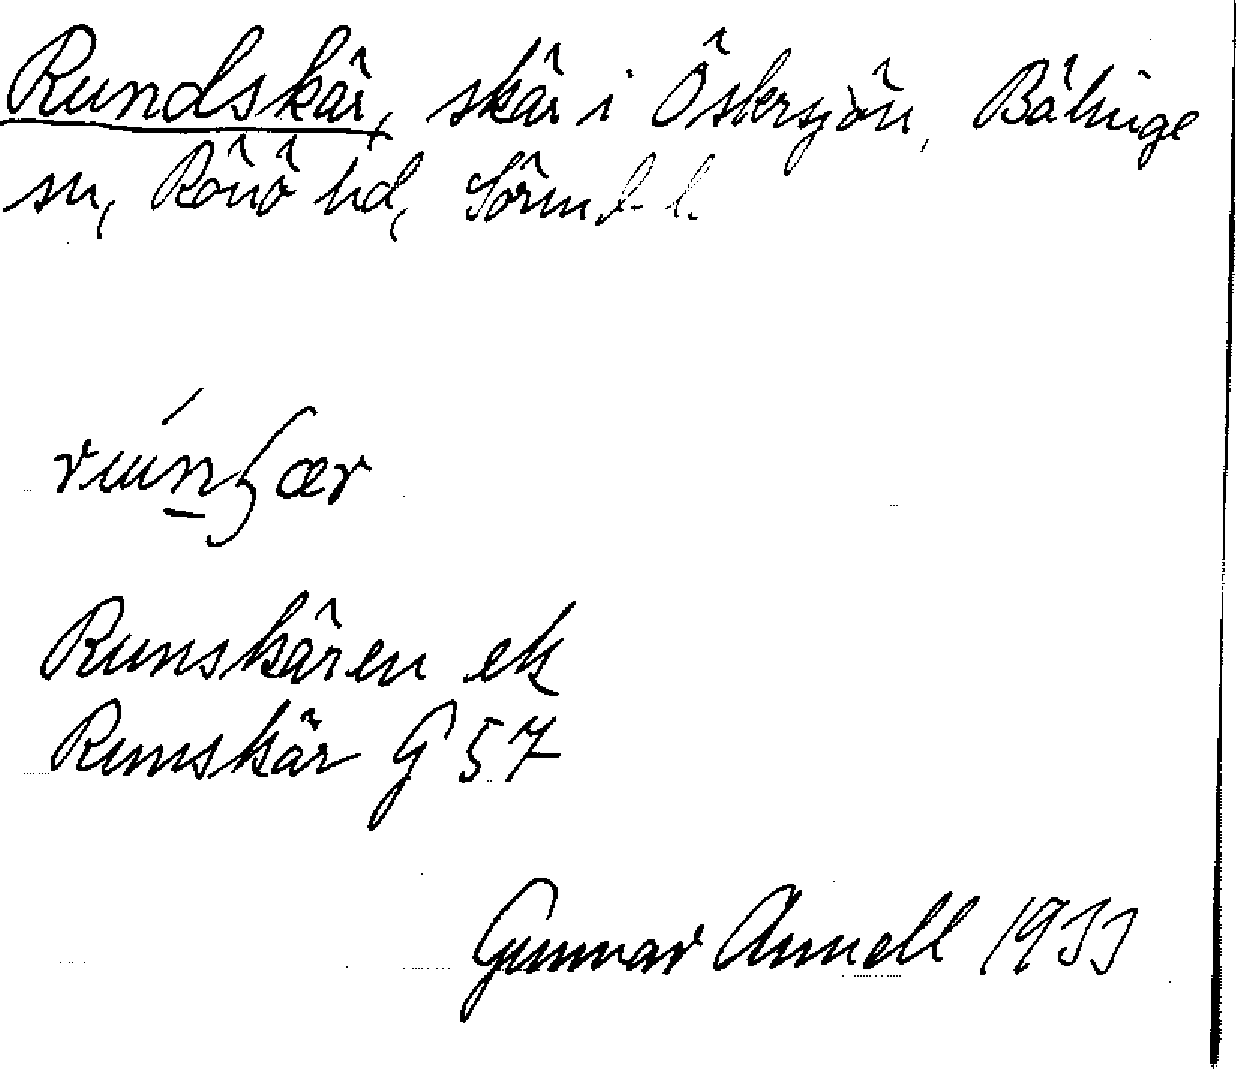 Rundskär, skär i Östersjön, Bälinge
sn, Rönö hd, Sörml. l.
Runskären ek
Runskär G 57
Gunnar Annell 1933